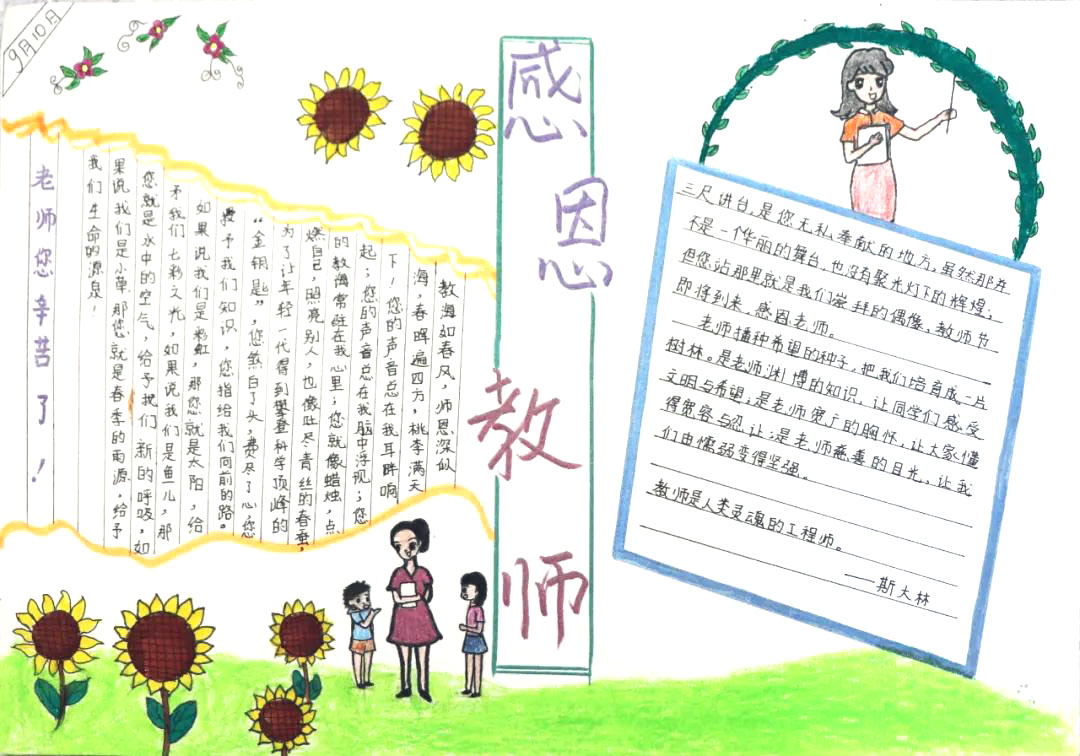 9月10日
感恩教师
老师您辛苦了！
教诲如春风，师恩深似
海，春晖遍四方，桃李满天
下！您的声音总在我耳畔响
起；您的声音总在我脑中浮现；您
的教诲常驻在我心里；您就像蜡烛，点
燃自己，照亮别人，也像吐尽青丝的春蚕，
为了让年轻一代得到攀登科学顶峰的
“金钥匙”，您熬白了头，费尽了心，您
授予我们知识，您指给我们向前的路。
如果说我们是彩虹，那您就是太阳，给
予我们七彩之光，如果说我们是鱼儿，那
您就是水中的空气，给予我们新的呼吸，如
果说我们是小草，那您就是春季的雨源，给予
我们生命的源泉！
三尺讲台，是您无私奉献的地方，虽然那并
不是一个华丽的舞台，也没有聚光灯下的辉煌，
但您站那里就是我们崇拜的偶像，教师节
即将到来，感恩老师。
老师播种希望的种子，把我们培育成一片
树林。是老师渊博的知识，让同学们感受
文明与希望；是老师宽广的胸怀，让大家懂
得宽容与忍让；是老师慈善的目光，让我
们由懦弱变得坚强。
教师是人类灵魂的工程师。
——斯大林